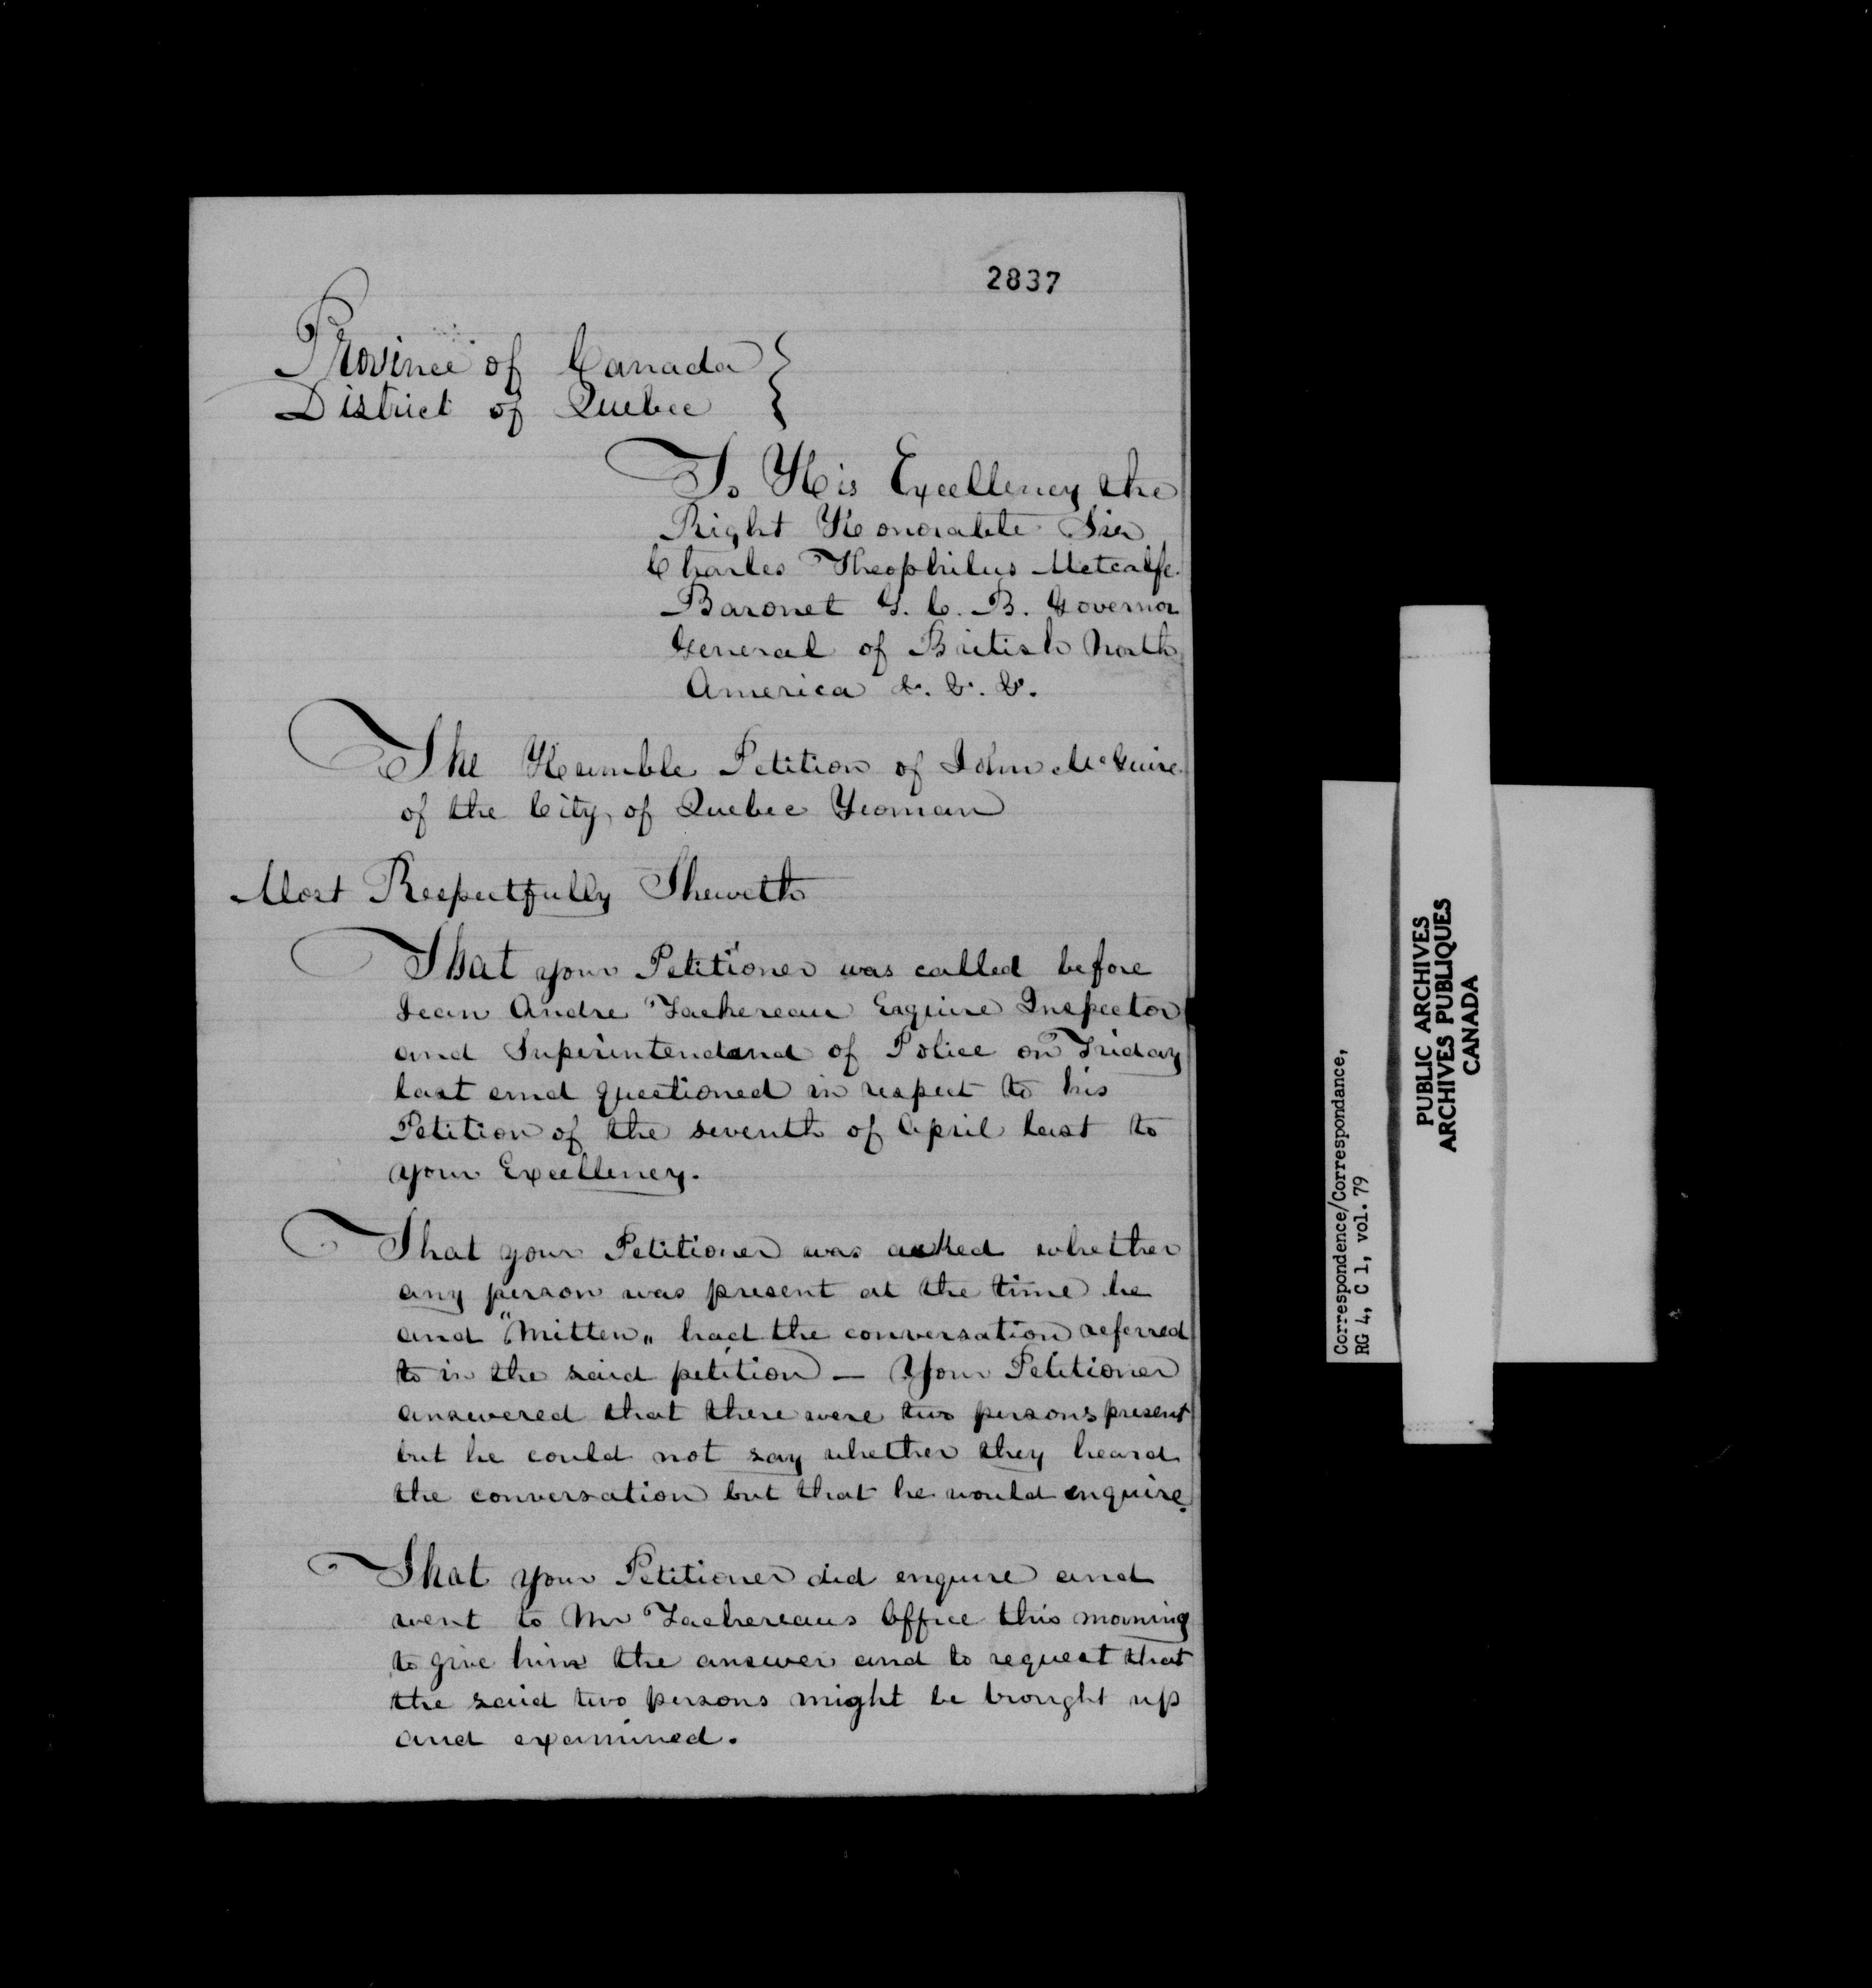 2837
Province of Canada }
District of Quebec }
To His Excellency the
Right Honorable Sir
Charles Theophilus Metcalfe
Baronet G. C. B. Governor
General of British North
America &. &. &.
The Humble Petition of John McGuire
of the City of Quebec Yeoman
Most Respectfully Sheweth
That your Petitioner was called before
Jean Andre Tachereau Esquire Inspector
and Superintendand of Police on Friday
last and questioned in respect to his
Petition of the seventh of April last to
your Excellency.
That your Petitioner was asked whether
any person was present at the time he
and "Mitten„ had the conversation referred
to in the said petition — Your Petitioner
answered that there were two persons present
but he could not say whether they heard
the conversation but that he would enquire.
That your Petitioner did enquire and
went to Mr Tachereaus Office this morning
to give him the answer and to request that
the said two persons might be brought up
and examined.
Correspondence/Correspondance,
RG 4, C 1, vol. 79
PUBLIC ARCHIVES
ARCHIVES PUBLIQUES
CANADA